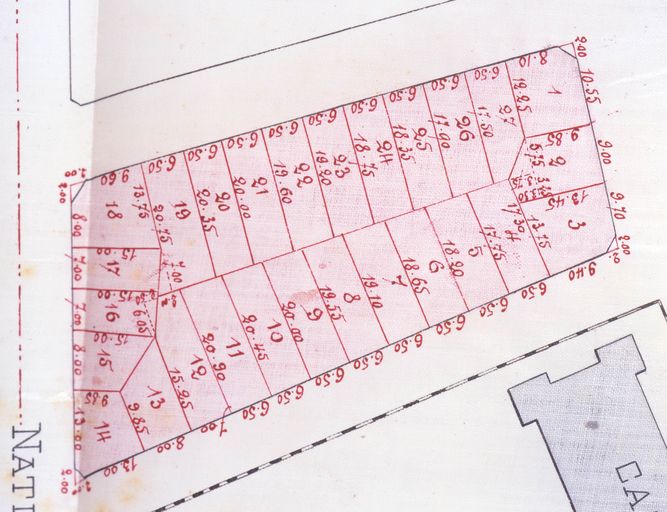 2.40
8.10
10.55
1
12.25
6.50
27
17.50
6.50
26
17.90
6.50
25
18.35
6.50
24
18.75
6.50
23
19.20
6.50
22
19.60
6.50
21
20.00
6.50
20
20.35
6.50
19
20.75
9.60
13.75
18
2.00
8.00
9.85
2
5.75
9.00
12.45
3
9.70
2.00
9.40
13.75
4
17.30
6.50
17.75
5
6.50
18.20
6
6.50
18.65
7
6.50
19.10
8
6.50
19.55
9
6.50
20.00
10
6.50
20.45
11
6.50
20.90
12
7.00
15.25
13
8.00
9.85
14
12.00
13.00
2.00
9.85
15
8.00
15.00
16
6.05
7.00
15.00
17
7.00
15.00
7.00
NATI
CA